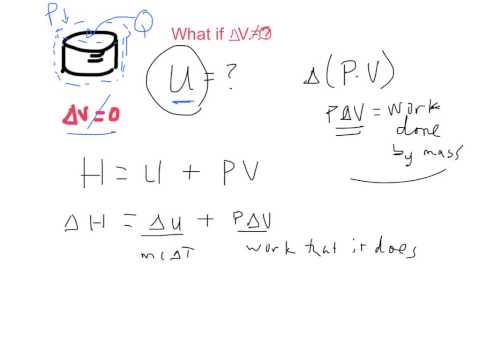 P↓ Q
What if ΔV≠0?
ΔV=0
U = ?
Δ(P·V)
PΔV = work
done
by mass
H = U + PV
ΔH = ΔU + PΔV
mcΔT work that it does